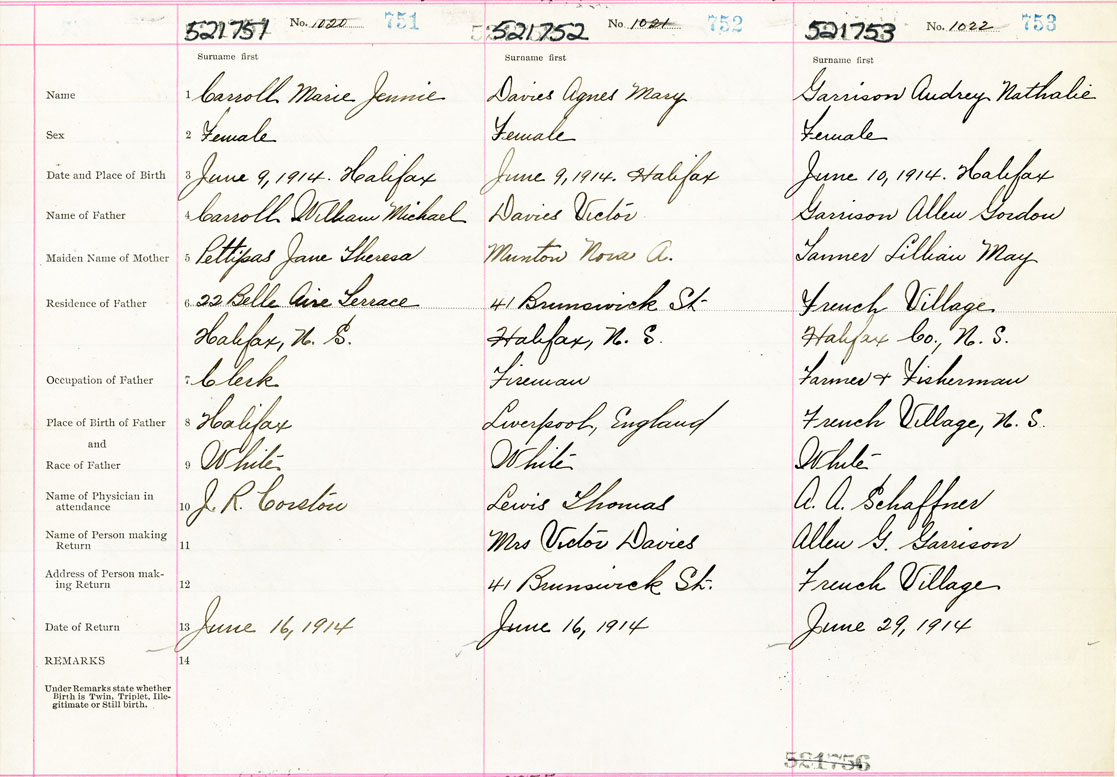 521751 No. 1020 751 521752 No. 1021 752 521753 No. 1022 753
Surname first Surname first Surname first
Name 1 Carroll Marie Jennie Davies Agnes Mary Garrison Audrey Nathalie
Sex 2 Female Female Female
Date and Place of Birth 3 June 9, 1914. Halifax June 9, 1914. Halifax June 10, 1914. Halifax
Name of Father 4 Carroll William Michael Davies Victor Garrison Allen Gordon
Maiden Name of Mother 5 Pettipas Jane Theresa Munton Nora A. Tanner Lillian May
Residence of Father 6 22 Belle Aire Terrace 41 Brunswick St. French Village
Halifax, N. S. Halifax, N. S. Halifax Co., N. S.
Occupation of Father 7 Clerk Fireman Farmer + Fisherman
Place of Birth of Father 8 Halifax Liverpool, England French Village, N. S.
and
Race of Father 9 White White White
Name of Physician in
attendance 10 J. R. Corston Lewis Thomas A. A. Schaffner
Name of Person making
Return 11 Mrs Victor Davies Allen G. Garrison
Address of Person mak-
ing Return 12 41 Brunswick St. French Village
Date of Return 13 June 16, 1914 June 16, 1914 June 29, 1914
REMARKS 14
Under Remarks state whether
Birth is Twin, Triplet, Ille-
gitimate or Still birth.
521756